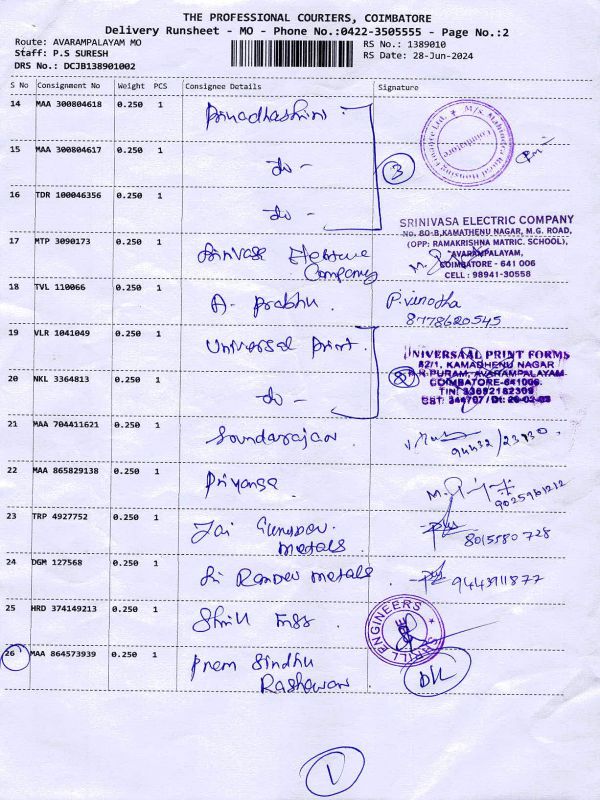 THE PROFESSIONAL COURIERS, COIMBATORE
Delivery Runsheet - MO - Phone No.:0422-3505555 - Page No.:2
Route: AVARAMPALAYAM MO
Staff: P.S SURESH
DRS No.: DCJB138901002
RS No.: 1389010
RS Date: 28-Jun-2024
S No Consignment No Weight PCS Consignee Details Signature
14 MAA 300804618 0.250 1
15 MAA 300804617 0.250 1 do -
16 TDR 100046356 0.250 1 do -
3
M/s. Mahindra Rural Housing Finance Ltd.
Coimbatore
17 MTP 3090173 0.250 1 Srinivasa Electric
Company
SRINIVASA ELECTRIC COMPANY
No. 80-B, KAMATHENU NAGAR, M.G. ROAD,
(OPP: RAMAKRISHNA MATRIC. SCHOOL),
AVARAMPALAYAM,
COIMBATORE - 641 006
CELL : 98941-30558
18 TVL 110066 0.250 1 A. Prabhu. P. vinodha
8778620545
19 VLR 1041049 0.250 1 Universal Print.
20 NKL 3364813 0.250 1 do -
2
UNIVERSAAL PRINT FORMS
82/1, KAMADHENU NAGAR
R.PURAM, AVARAMPALAYAM
COIMBATORE-641006.
TIN: 33692182309
CST: 344707 / Dt: 26-02-03
21 MAA 704411621 0.250 1 Soundarajan 94432/23830.
22 MAA 865829138 0.250 1 Priyanga
23 TRP 4927752 0.250 1 Jai
Metals 8015580728
24 DGM 127568 0.250 1 Sri Metals 9443911877
25 HRD 374149213 0.250 1 Shrill Engs
SHRILL ENGINEERS
26 MAA 864573939 0.250 1 Prem Sindhu
DL
1